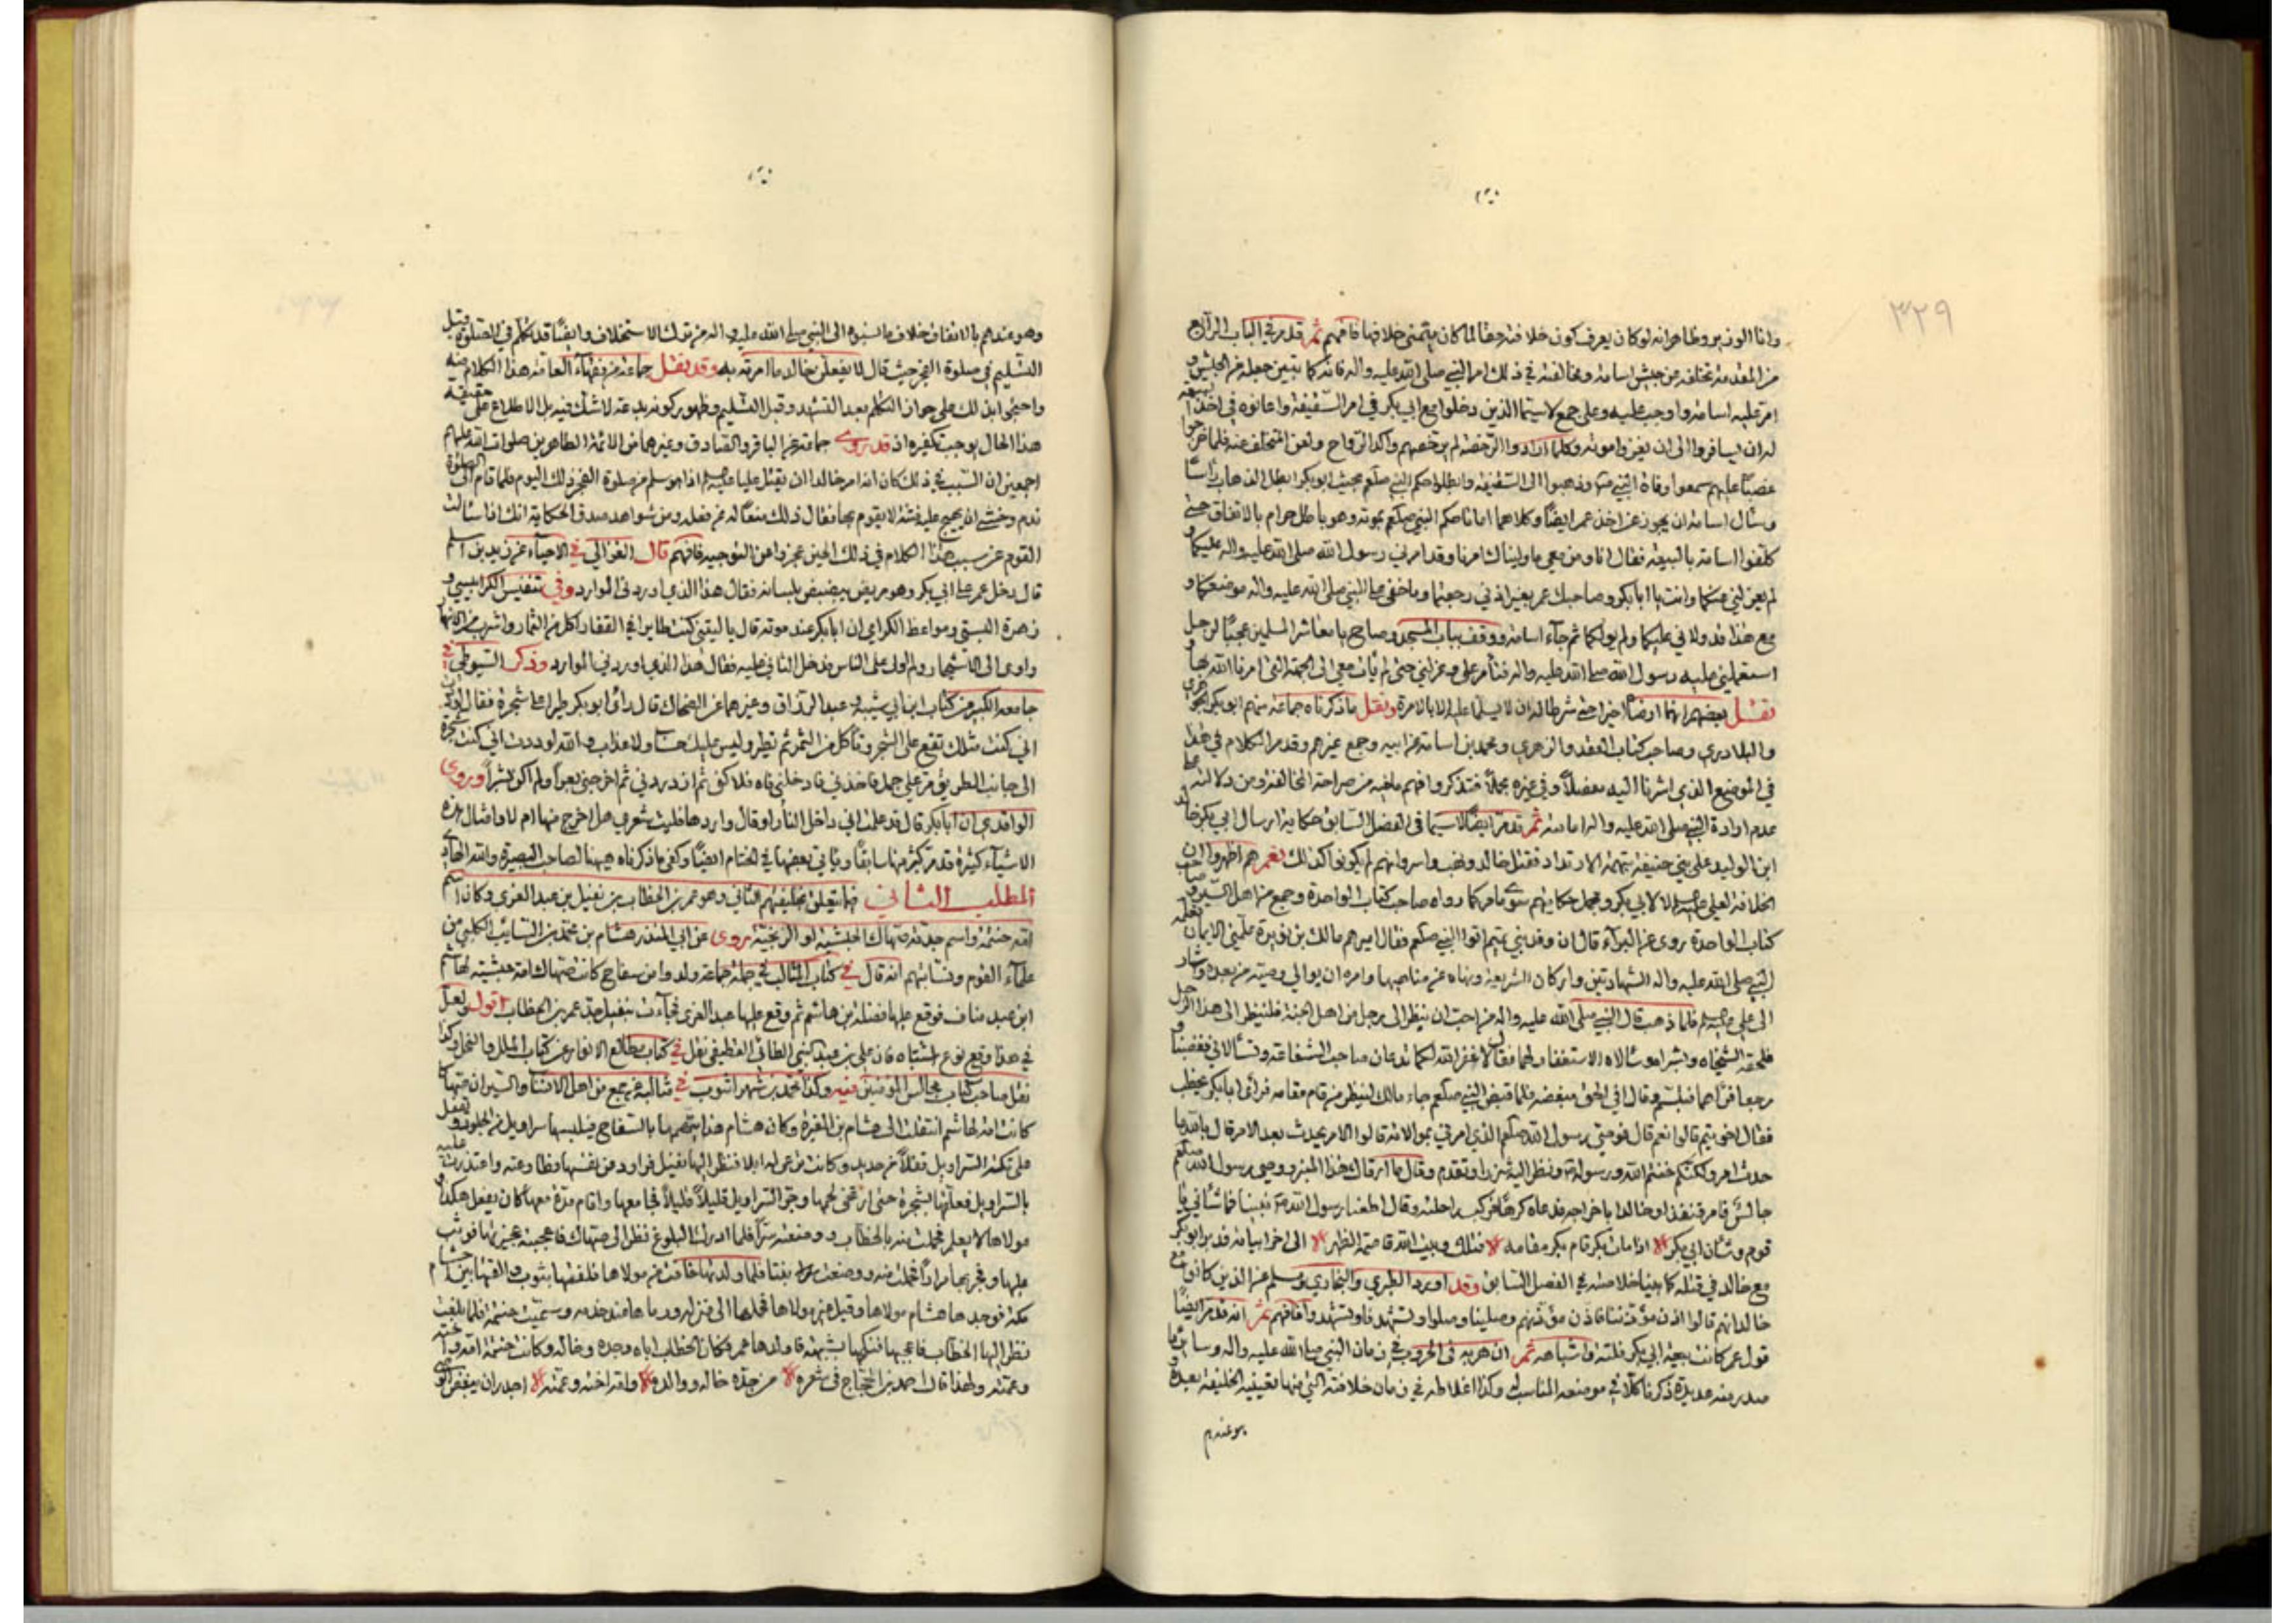 ٣٢٩
وانا الوزير وظاهر انه لو كان يعرف كون خلافته حقا لما كان يتمنى خلافها فافهم ثم قد مر في الباب الرابع
من المقدمة تخلفه عن جيش اسامة ومخالفته في ذلك امر النبي صلى الله عليه واله فانه كما تبين جعله من الجيش و
امر عليه اسامة واوجب عليه وعلى جمع لا سيما الذين دخلوا مع ابي بكر في امر السقيفة واعانوه في اخذ البيعة
له ان يسافروا الى ان وكلما ارادوا الرخصة لم يرخصهم واكد الرواح ولعن المتخلف عنه فلما خرجوا
غصبا عليهم سمعوا وفاة النبي وذهبوا الى السقيفة وابطلوا حكم النبي صلعم بحيث ابو بكر ابطل الذهاب راسا
وسأل اسامة ان يجوز عن اخذ عمر ايضا وكلاهما اماتا حكم النبي صلعم بموته وهو باطل حرام بالاتفاق حتى
كلفوا اسامة بالبيعة فقال انا ومن معي ما وليناك امرنا وقد امرني رسول الله صلى الله عليه واله عليكما و
لم يعزلني عنكما وانت يا ابا بكر وصاحبك عمر بغير اذني رجعتما وما خفي على النبي صلى الله عليه واله موضعكما و
مع هذا قد ولاني عليكما ولم يولكما ثم جاء اسامة ووقف بباب المسجد وصاح يا معاشر المسلمين عجبا لرجل
استعملني عليه رسول الله صلى الله عليه واله فتأمر علي وعزلني حتى لم يأت معي الى الجهة التي امرنا الله بها و
نقل بعضهم انهما ارضيا اخيرا حتى شرط له ان لا يسلما عليه الا بالامرة ونقل ما ذكرناه جماعة منهم ابو بكر الجوهري
والبلاذري وصاحب كتاب العقد والزهري ومحمد بن اسامة عن ابيه وجمع غيرهم وقد مر الكلام في هذا
في الموضع الذي اشرنا اليه مفصلا وفي غيره مجملا فتذكر وافهم ما فيه من صراحة المخالفة ومن دلالته على
عدم ارادة النبي صلى الله عليه واله امامته ثم تقدم ايضا لا سيما في الفصل السابق حكاية ارسال ابي بكر خالد
ابن الوليد على بني حنيفة بتهمة الارتداد فقتل خالد ونهب واسر وانهم لم يكونوا كذلك نعم هم اظهروا ان
الخلافة لعلي لا لابي بكر ومجمل حكايتهم سوى ما مر كما رواه صاحب كتاب الواحدة وجمع من اهل السير
كتاب الواحدة روى عن البراء قال ان وفد بني تميم اتوا النبي صلعم فقال اميرهم مالك بن نويرة علمني الايمان فعلمه
النبي صلى الله عليه واله الشهادتين واركان الشريعة ونهاه عن مناهيها وامره ان يوالي وصيه من بعده واشار
الى علي فلما ذهب قال النبي صلى الله عليه واله من احب ان ينظر الى رجل من اهل الجنة فلينظر الى هذا الرجل
فلحقه الشيخاه وبشراه وسألاه الاستغفار لهما فقال لا غفر الله لكما تدعان صاحب الشفاعة وتسألاني فغضبا و
رجعا فرآهما فتبسم وقال في الحق مبغضة فلما قبض النبي صلعم جاء مالك لينظر من قام مقامه فرأى ابا بكر يخطب
فقال اخو تيم قالوا نعم قال فوصي رسول الله صلعم الذي امرني بموالاته قالوا الامر يحدث بعد الامر قال بالله ما
حدث امر ولكنكم خنتم الله ورسوله ونظر اليه شزرا وتقدم وقال ما ارقاك هذا المنبر ووصي رسول الله صلعم
جالس فامر قنفذا وخالدا باخراجه فدعاه كرها فركب راحلته وقال اطعنا رسول الله ما كان بيننا فيا
قوم وشأن ابي بكر اذا مات بكر قام بكر مقامه فتلك وبيت الله قاصمة الظهر الى اخر ابياته فدبر ابو بكر
مع خالد في قتله كما بينا خلاصته في الفصل السابق وقد اورد الطبري والبخاري ومسلم عن الذين كانوا مع
خالد انهم قالوا اذن مؤذننا فاذن مؤذنهم وصلينا وصلوا وتشهدنا وتشهدوا فافهم ثم انه قد مر ايضا
قول عمر كانت بيعة ابي بكر فلتة واشباهه ثم ان هربه في الحروب في زمان النبي صلى الله عليه واله وسائر ما
صدر منه عديدة ذكرنا كلا في موضعه المناسب له وكذا اغلاطه في زمان خلافته التي منها تعيينه الخليفة بعده و
هو عندهم
وهو عندهم بالاتفاق خلاف ما نسبوه الى النبي صلى الله عليه واله من ترك الاستخلاف وايضا قد تكلم في الصلوة قبل
التسليم في صلوة الفجر حيث قال لا يفعلن خالد ما امرته به وقد نقل جماعة من فقهاء العامة هذا الكلام منه
واحتجوا بذلك على جواز التكلم بعد التشهد وقبل التسليم وظهور كونه بدعة لا شك فيه بل الاطلاع على حقيقة
هذا الحال يوجب تكفيره اذ قد روى جماعة عن الباقر والصادق وغيرهما من الائمة الطاهرين صلوات الله عليهم
اجمعين ان السبب في ذلك كان انه امر خالدا ان يقتل عليا اذا هو سلم من صلوة الفجر ذلك اليوم فلما قام الى الصلوة
ندم وخشي ان يهيج عليه فتنة لا يقوم بها فقال ذلك منعا له عن فعله ومن شواهد صدق الحكاية انك اذا سألت
القوم عن سبب هذا الكلام في ذلك الحين عجزوا عن التوجيه فافهم قال الغزالي في الاحياء عن زيد بن اسلم
قال دخل عمر على ابي بكر وهو مريض ينضنض بلسانه فقال هذا الذي اوردني الموارد وفي تفسير الكرابيسي و
زهرة البستي ومواعظ الكرامي ان ابا بكر عند موته قال يا ليتني كنت طايرا في القفار اكل من الثمار واشرب من الانهار
واوي الى الاشجار ولم اول على الناس فدخل الثاني عليه فقال هذا الذي اوردني الموارد وذكر السيوطي في
جامعه الكبير من كتاب ابن ابي شيبة وعبد الرزاق وغيرهما عن الضحاك قال رأى ابو بكر طيرا على شجرة فقال لوددت
اني كنت مثلك تقع على الشجر وتأكل من الثمر ثم تطير وليس عليك حساب ولا عذاب والله لوددت اني كنت شجرة
الى جانب الطريق مر علي جمل فاخذني فادخلني فاه فلاكني ثم ازدردني ثم اخرجني بعرا ولم اكن بشرا وروى
الواقدي ان ابا بكر قال قد علمت اني داخل النار او قال واردها فليت شعري هل اخرج منها ام لا وامثال هذه
الاشياء كثيرة قد مر كثير منها سابقا ويأتي بعضها في الختام ايضا وكفى ما ذكرناه هيهنا لصاحب البصيرة والله الهادي
المطلب الثاني فيما يتعلق بخليفتهم الثاني وهو عمر بن الخطاب بن نفيل بن عبد العزى وكان اسم
امه حنتمة واسم جدته صهاك الحبشية او الزنجية روى عن ابي المنذر هشام بن محمد بن السايب الكلبي من
علماء القوم ونسابتهم انه قال في كتاب المثالب في جملة جماعة ولدوا من سفاح كانت صهاك امة حبشية لهاشم
ابن عبد مناف فوقع عليها نضلة بن هاشم ثم وقع عليها عبد العزى فجاءت بنفيل جد عمر بن الخطاب اقول ولعل
في هذا وقع نوع اشتباه فان علي بن عبد النبي الطائي القطيفي نقل في كتاب طالع الانوار عن كتاب الملل والنحل وكذا
نقل صاحب كتاب مجالس المؤمنين فيه وكذا محمد بن شهر اشوب في مثالبه عن جمع من اهل الانساب والسير ان صهاك
كانت امة لهاشم انتقلت الى هشام بن المغيرة وكان هشام هذا يتهمها بالسفاح فيلبسها سراويل من الجلود ويقفل
على تكة السراويل قفلا من حديد وكانت ترعى له ابلا فنظر اليها نفيل فراود عن نفسها وطاوعته واعتذرت عليه
بالسراويل فعلقها بشجرة حتى ارتخى لحمها وجر السراويل قليلا قليلا فجامعها واقام مدة معها كان يفعل هكذا و
مولاها لا يعلم فحملت منه بالخطاب ووضعته سرا فلما ادرك البلوغ نظر الى صهاك فاعجبته عجيزتها فوثب
عليها وفجر بها مرارا فحملت منه ووضعت بنتا فلما ولدتها خافت من مولاها فلفتها بثوب والقتها بين احشام
مكة فوجدها هشام مولاها وقيل غير مولاها فحملها الى منزله ورباها عند خدمه وسميت حنتمة فلما بلغت
نظر اليها الخطاب فاعجبها فنكحها بشبهة فاولدها عمر فكان الخطاب اباه وجده وخاله وكانت حنتمة امه واخته
وعمته ولهذا قال احمد بن الحجاج في شعره من جده خاله ووالده وامه اخته وعمته اجدر ان يبغض الوصي